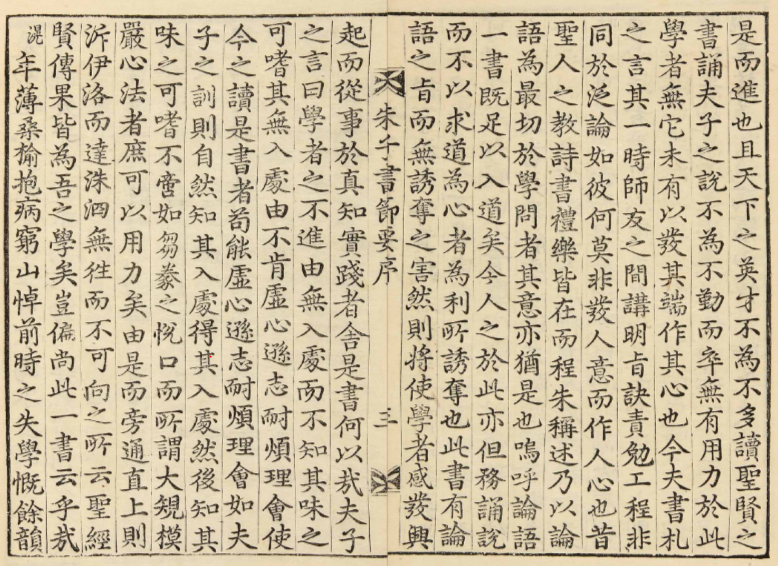 是而進也且天下之英才不為不多讀聖賢之
書誦夫子之說不為不勤而卒無有用力於此
學者無它未有以發其端作其心也今夫書札
之言其一時師友之間講明旨訣責勉工程非
同於泛論如彼何莫非發人意而作人心也昔
聖人之教詩書禮樂皆在而程朱稱述乃以論
語為最切於學問者其意亦猶是也嗚呼論語
一書既足以入道矣今人之於此亦但務誦說
而不以求道為心者為利所誘奪也此書有論
語之旨而無誘奪之害然則將使學者感發興
朱子書節要序
三
起而從事於真知實踐者舍是書何以哉夫子
之言曰學者之不進由無入處而不知其味之
可嗜其無入處由不肯虛心遜志耐煩理會使
今之讀是書者苟能虛心遜志耐煩理會如夫
子之訓則自然知其入處得其入處然後知其
味之可嗜不啻如芻豢之悅口而所謂大規模
嚴心法者庶可以用力矣由是而旁通直上則
泝伊洛而達洙泗無往而不可向之所云聖經
賢傳果皆為吾之學矣豈偏尚此一書云乎哉
滉年薄桑楡抱病窮山悼前時之失學慨餘韻